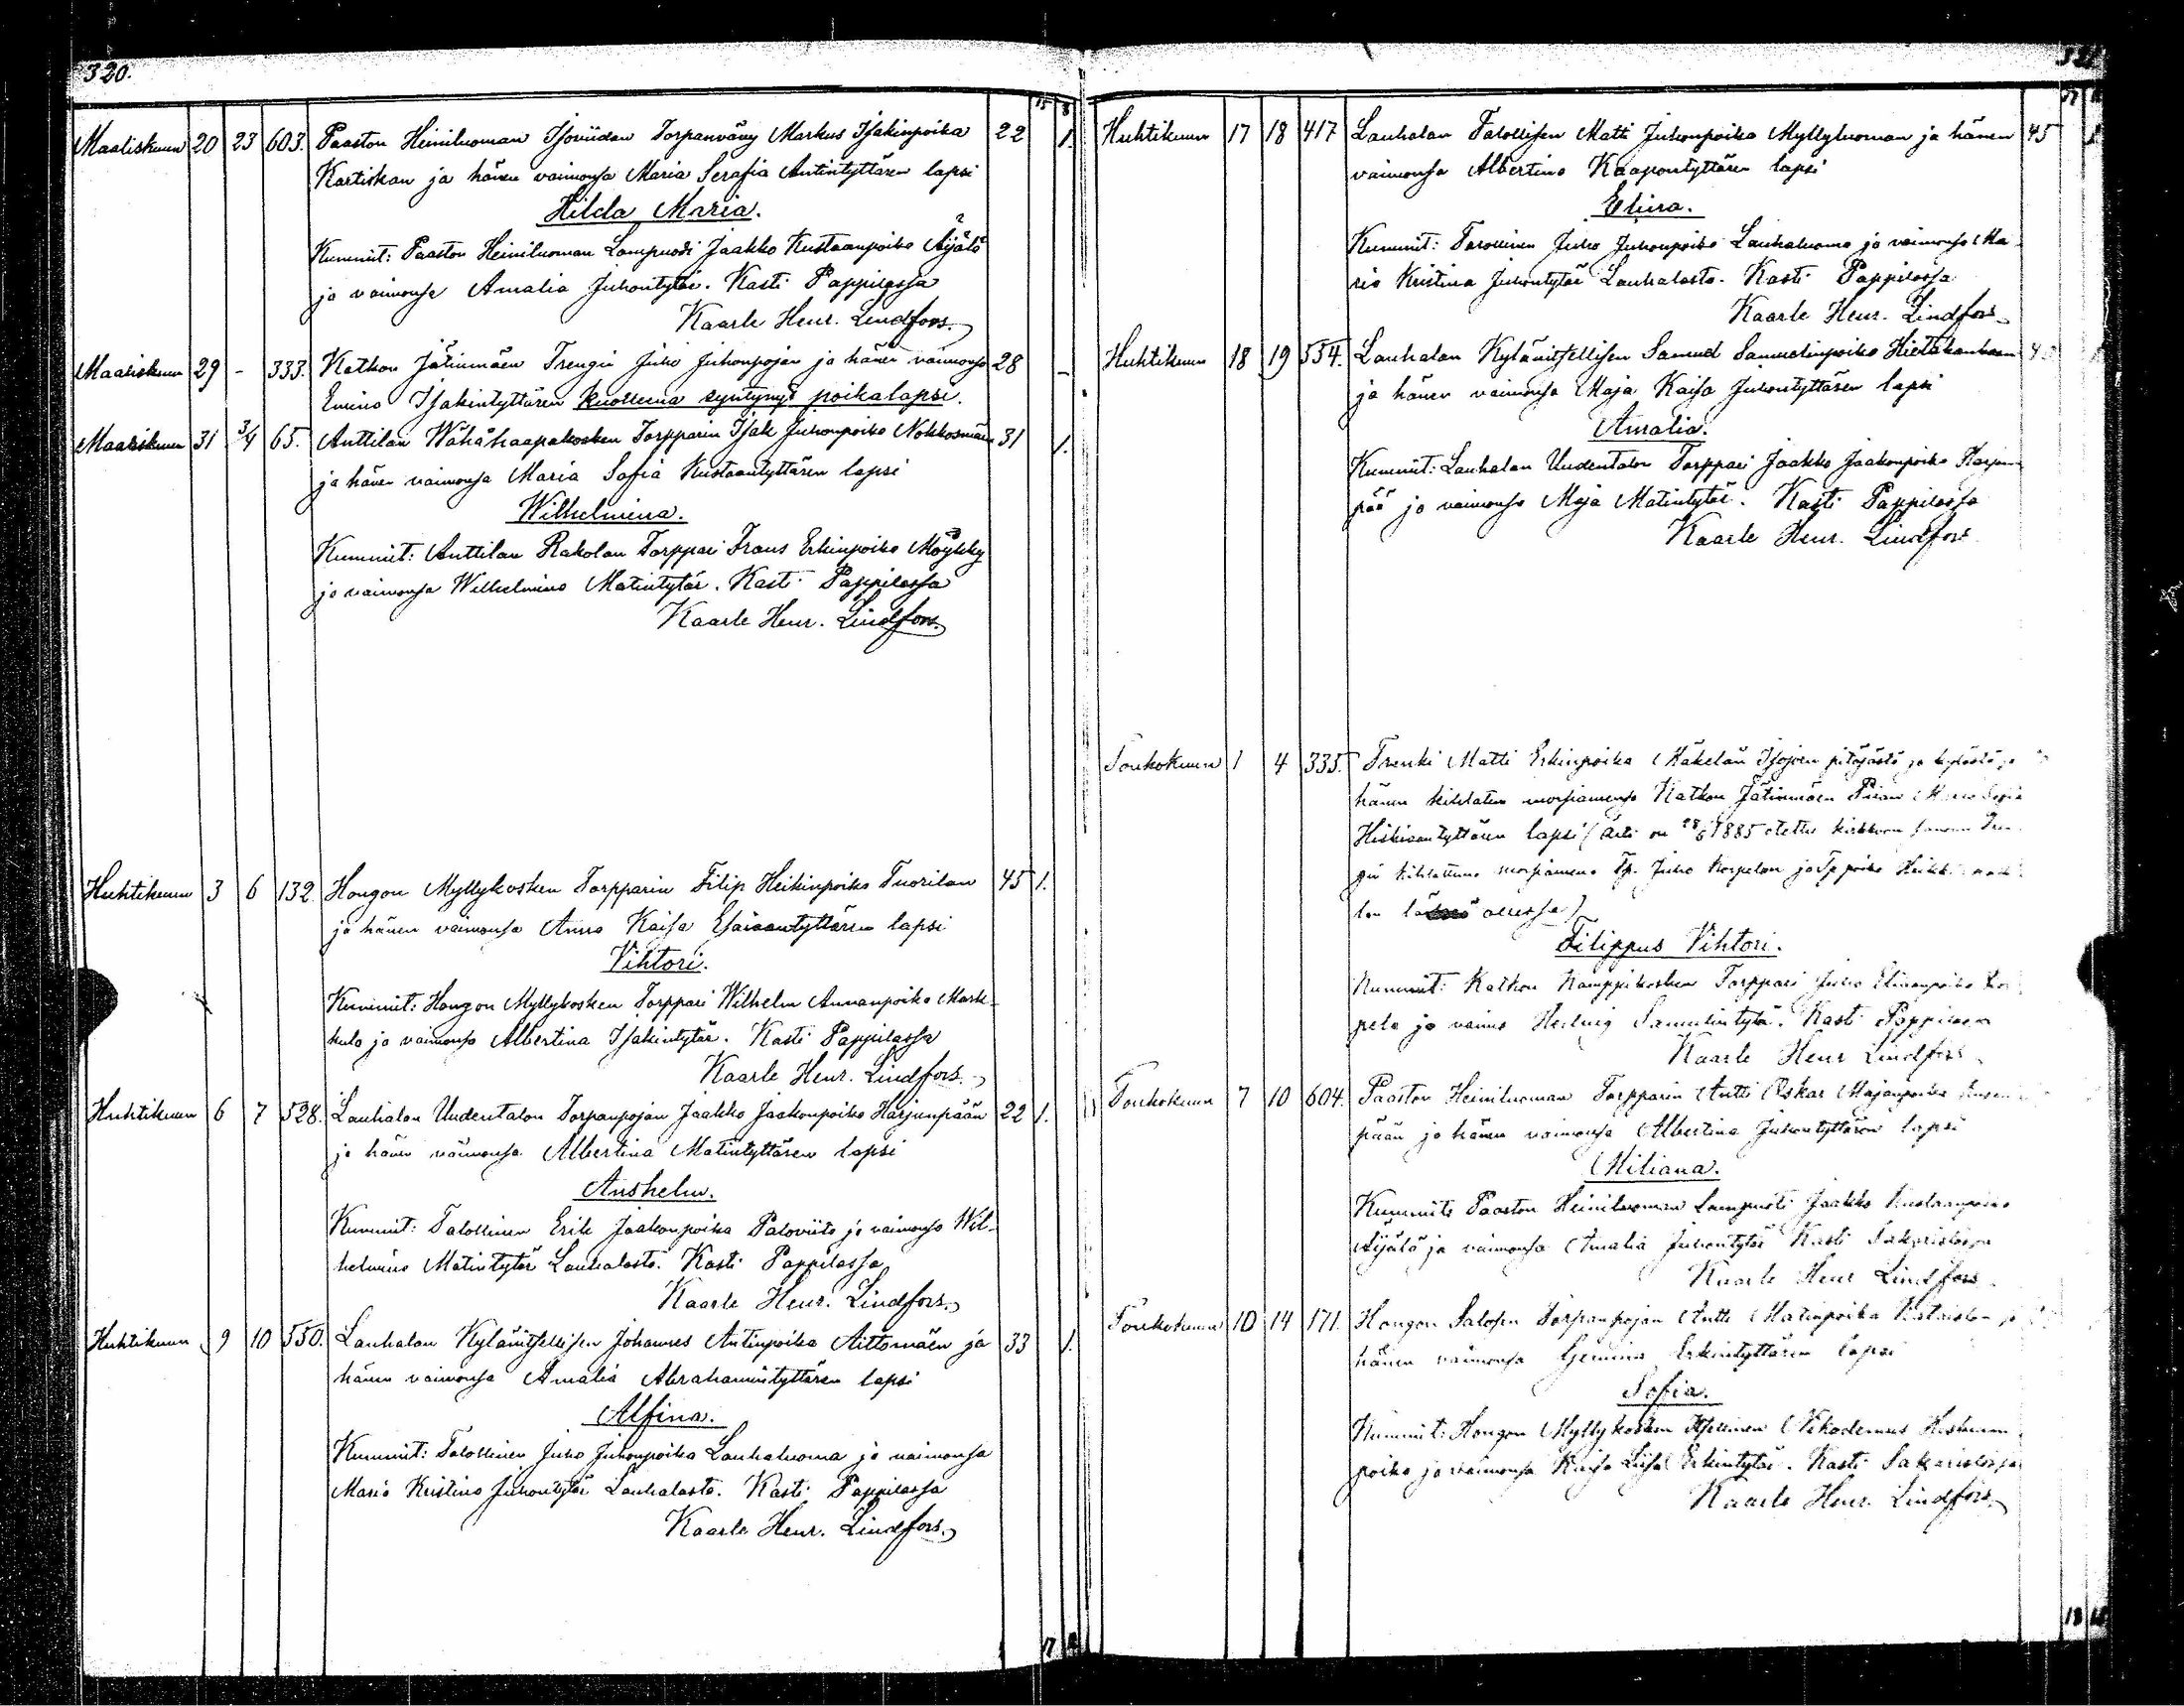 320.
15 8
Maaliskuun 20 23 603. Paaston Heiniluoman Isoviidan Torpanvävy Markus Isakinpoika 22 1.
Kartiskan ja hänen vaimonsa Maria Serafia Antintyttären lapsi
Hilda Maria.
Kummit: Paaston Heiniluoman Lampuodi Jaakko Kustaanpoika Äijälä
ja vaimonsa Amalia Juhontytär. Kasti Pappilassa
Kaarle Henr. Lindfors.
Maaliskuun 29 - 333. Katkon Jätinmäen Trengin Juho Juhonpojan ja hänen vaimonsa 28 -
Emina Isakintyttären kuolleena syntynyt poikalapsi.
Maaliskuun 31 3/4 65. Anttilan Wähähaapakosken Torpparin Isak Juhonpoika Nokkosmäen 31 1.
ja hänen vaimonsa Maria Sofia Kustaantyttären lapsi
Wilhelmina.
Kummit: Anttilan Rakolan Torppari Frans Erkinpoika Möykky
ja vaimonsa Wilhelmina Matintytär. Kasti Pappilassa
Kaarle Henr. Lindfors.
Huhtikuun 3 6 132. Hongon Myllykosken Torpparin Filip Heikinpoika Tuorilan 45 1.
ja hänen vaimonsa Anna Kaisa Esaiaantyttären lapsi
Vihtori.
Kummit: Hongon Myllykosken Torppari Wilhelm Annanpoika Mark-
kula ja vaimonsa Albertina Isakintytär. Kasti Pappilassa
Kaarle Henr. Lindfors.
Huhtikuun 6 7 528. Lauhalan Uudentalon Torpanpojan Jaakko Jaakonpoika Harjunpään 22 1.
ja hänen vaimonsa Albertina Matintyttären lapsi
Anshelm.
Kummit: Talollinen Erik Jaakonpoika Paloviita ja vaimonsa Wil-
helmina Matintytär Lauhalasta. Kasti Pappilassa
Kaarle Henr. Lindfors.
Huhtikuun 9 10 550. Lauhalan Kylänitsellisen Johannes Antinpoika Aittomäen ja 33 1.
hänen vaimonsa Amalia Abrahamintyttären lapsi
Alfina.
Kummit: Talollinen Juho Juhonpoika Lauhaluoma ja vaimonsa
Maria Kristina Juhontytär Lauhalasta. Kasti Pappilassa
Kaarle Henr. Lindfors.
17
321
17
Huhtikuun 17 18 417 Lauhalan Talollisen Matti Juhonpoika Myllyluoman ja hänen 45
vaimonsa Albertina Kaapontyttären lapsi
Eliina.
Kummit: Talollinen Juho Juhonpoika Lauhaluoma ja vaimonsa Ma-
ria Kristina Juhontytär Lauhalasta. Kasti Pappilassa
Kaarle Henr. Lindfors.
Huhtikuun 18 19 554. Lauhalan Kylänitsellisen Samuel Samuelinpoika Hietakankaan
ja hänen vaimonsa Maja Kaisa Juhontyttären lapsi
Amalia.
Kummit: Lauhalan Uudentalon Torppari Jaakko Jaakonpoika Harjun-
pää ja vaimonsa Maja Matintytär. Kasti Pappilassa
Kaarle Henr. Lindfors
Toukokuun 1 4 335. Trenki Matti Erkinpoika Käkelän Isojoen pitäjästä ja kylästä ja
hänen kihlatun morsiamensa Katkon Jätinmäen Piian Maria Sofia
Hiskiaantyttären lapsi (Äiti on 28/6 1885 otettu kirkkoon
gin kihlattuna morsiamena Tp. Juho Korpelan ja Tp poika Heikki
lan läsnä ollessa)
Filippus Vihtori.
Kummit: Katkon Kamppikosken Torppari Juho Kor-
pela ja vaimo Hedvig Samulintytär. Kasti Pappilassa
Kaarle Henr Lindfors
Toukokuun 7 10 604. Paaston Heiniluoman Torpparin Antti Oskar Majanpoika
pään ja hänen vaimonsa Albertina Juhontyttären lapsi
Miliana.
Kummit: Paaston Heiniluoman Lampuoti Jaakko Kustaanpoika
Äijälä ja vaimonsa Amalia Juhontytär Kasti Sakaristossa
Kaarle Henr Lindfors
Toukokuun 10 14 171. Hongon Salosen Torpanpojan Antti Matinpoika ja
hänen vaimonsa Gemina Erkintyttären lapsi
Sofia.
Kummit: Hongon Myllykosken Itsellinen Nikodemus
poika ja vaimonsa Kaisa Liisa Erkintytär. Kasti Sakaristossa
Kaarle Henr. Lindfors.